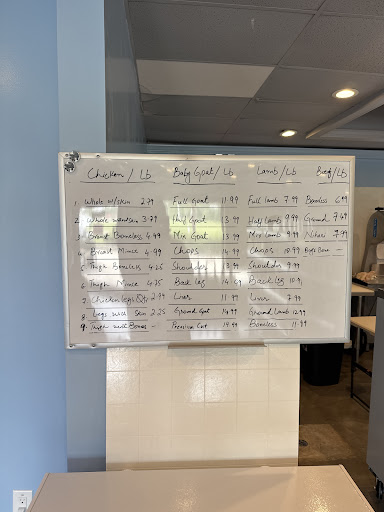 Chicken / Lb Baby Goat / Lb Lamb / Lb Beef / Lb
1. Whole w/skin 2.79 Full Goat 11.99 Full Lamb 7.99 Boneless 6.99
2. Whole 3.79 Half Goat 13.99 Half Lamb 9.99 Ground 7.49
3. Breast Boneless 4.99 Mix Goat 13.99 Mix Lamb 9.99 Nihari 7.99
4. Breast Mince 4.99 Chops 14.99 Chops 10.99 Beef Bone
5. Thigh Boneless 4.25 Shoulder 13.99 Shoulder 9.99
6. Thigh Mince 4.35 Back Leg 14.49 Back Leg 10.9
7. Chicken Legs 2.99 Liver 11.99 Liver 7.99
8. Legs with Skin 2.25 Ground Goat 14.99 Ground Lamb 12.99
9. Thigh with Bones - Premium Cut 14.99 Boneless 11.99